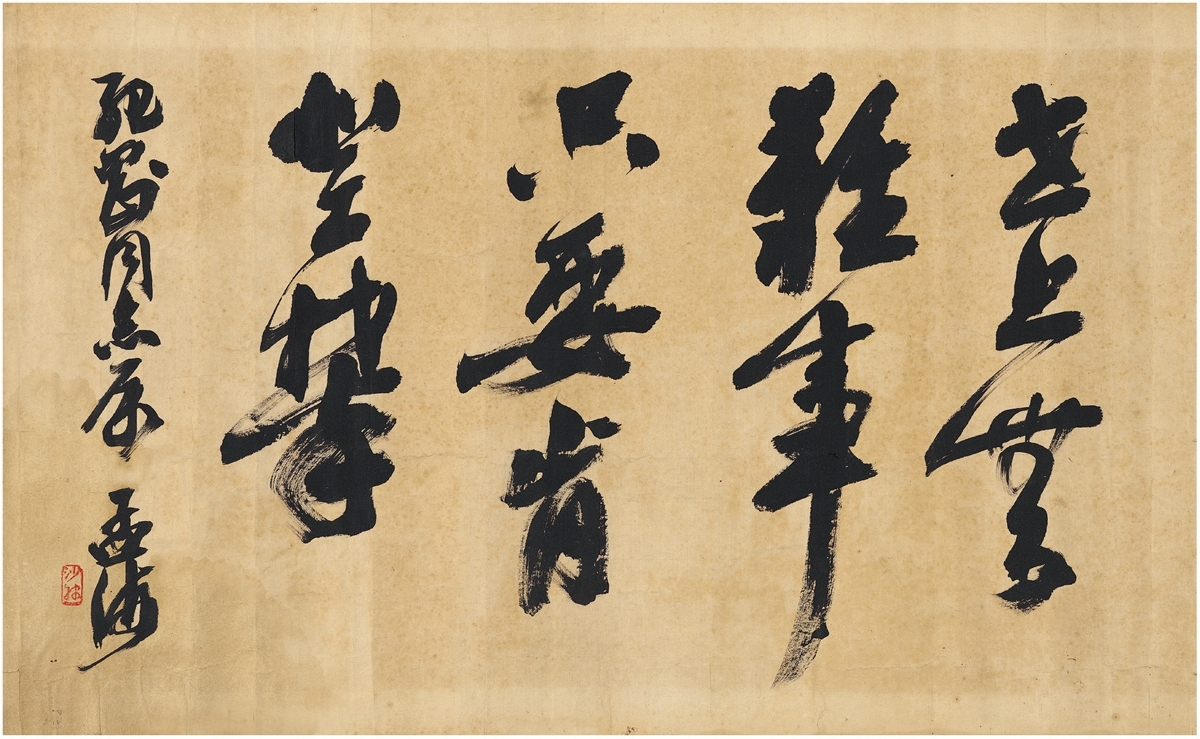 世上無
難事
只要肯
登攀
同志属
孟海
沙邨